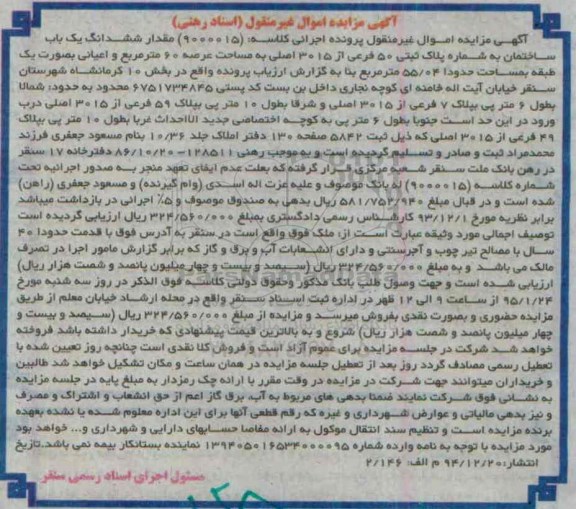 آگهی مزایده اموال غیرمنقول (اسناد رهنی)
آگهی مزایده اموال غیرمنقول پرونده اجرائی کلاسه: (9000015) مقدار ششدانگ یک باب
ساختمان به شماره پلاک ثبتی 50 فرعی از 3015 اصلی به مساحت عرصه 60 مترمربع و اعیانی بصورت یک
طبقه بمساحت حدودا 55/04 مترمربع بنا به گزارش ارزیاب پرونده واقع در بخش 10 کرمانشاه شهرستان
سنقر خیابان آیت اله خامنه ای کوچه نجاری داخل بن بست کد پستی 6751734845 محدود به حدود: شمالا
بطول 6 متر پی بپلاک 7 فرعی از 3015 اصلی و شرقا بطول 10 متر پی بپلاک 59 فرعی از 3015 اصلی درب
ورود در این حد است جنوبا بطول 6 متر پی به کوچه اختصاصی جدید الاحداث غربا بطول 10 متر پی بپلاک
49 فرعی از 3015 اصلی که ذیل ثبت 5842 صفحه 130 دفتر املاک جلد 10/36 بنام مسعود جعفری فرزند
محمدمراد ثبت و صادر و تسلیم گردیده است و به موجب رهنی 128511-86/10/20 دفترخانه 17 سنقر
در رهن بانک ملت سنقر شعبه مرکزی قرار گرفته که بعلت عدم ایفای تعهد منجر به صدور اجرائیه تحت
شماره کلاسه (9000015) له بانک موصوف و علیه عزت اله اسدی (وام گیرنده) و مسعود جعفری (راهن)
شده است و در قبال مبلغ 581/753/940 ریال بدهی به صندوق موصوف و 5% اجرائی در بازداشت میباشد
برابر نظریه مورخ 93/12/1 کارشناس رسمی دادگستری بمبلغ 324/560/000 ریال ارزیابی گردیده است
توصیف اجمالی مورد وثیقه عبارت است از: ملک فوق واقع است در سنقر به آدرس فوق با قدمت حدودا 40
سال با مصالح تیر چوب و آجرسنتی و دارای انشعابات آب و برق و گاز که برابر گزارش مامور اجرا در تصرف
مالک می باشد و به مبلغ 324/560/000 ریال (سیصد و بیست و چهار میلیون پانصد و شصت هزار ریال)
ارزیابی شده است و جهت وصول طلب بانک مذکور وحقوق دولتی کلاسه فوق الذکر در روز سه شنبه مورخ
95/1/24 از ساعت 9 الی 12 ظهر در اداره ثبت اسناد سنقر واقع در محله ارشاد خیابان معلم از طریق
مزایده حضوری و بصورت نقدی بفروش میرسد و مزایده از مبلغ 324/560/000 ریال (سیصد و بیست و
چهار میلیون پانصد و شصت هزار ریال) شروع و به بالاترین قیمت پیشنهادی که خریدار داشته باشد فروخته
خواهد شد شرکت در جلسه مزایده برای عموم آزاد است و فروش کلا نقدی است چنانچه روز تعیین شده با
تعطیل رسمی مصادف گردد روز بعد از تعطیل جلسه مزایده در همان ساعت و مکان تشکیل خواهد شد طالبین
و خریداران میتوانند جهت شرکت در مزایده در وقت مقرر با ارائه چک رمزدار به مبلغ پایه در جلسه مزایده
به نشانی فوق شرکت نمایند ضمنا بدهی های مربوط به آب، برق گاز اعم از حق انشعاب و اشتراک و مصرف
و نیز بدهی مالیاتی و عوارض شهرداری و غیره که رقم قطعی آنها برای این اداره معلوم شده یا نشده بعهده
برنده مزایده است و تنظیم سند انتقال موکول به ارائه مفاصا حسابهای دارایی و شهرداری و... خواهد بود
مورد مزایده با توجه به نامه وارده شماره 139405016534000095 نماینده بستانکار بیمه نمی باشد.تاریخ
انتشار:94/12/20 م الف: 2/146
مسئول اجرای اسناد رسمی سنقر